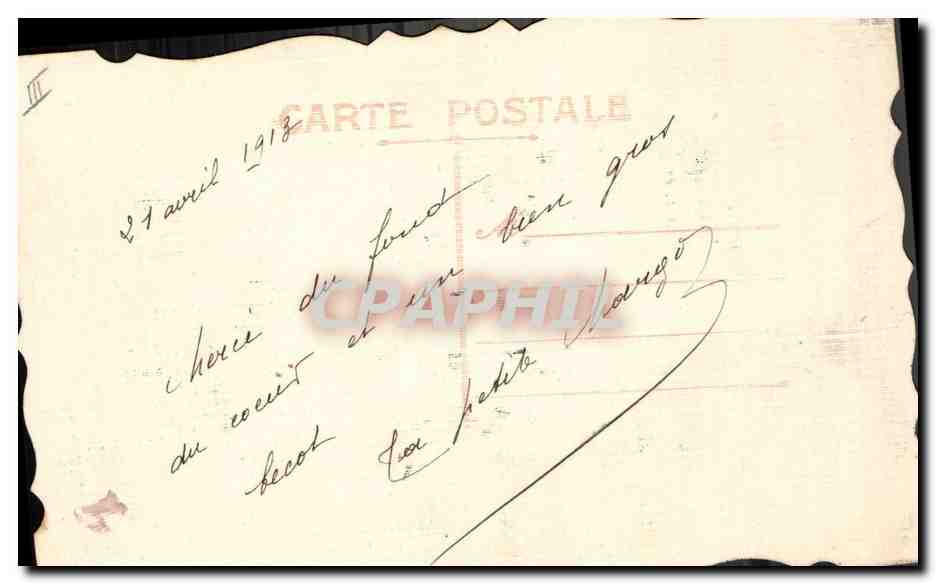 III
CARTE POSTALE
21 avril 1913
Merci du fond
du coeur et un bien gros
becot
Ta petite Margo
CPAPHIL